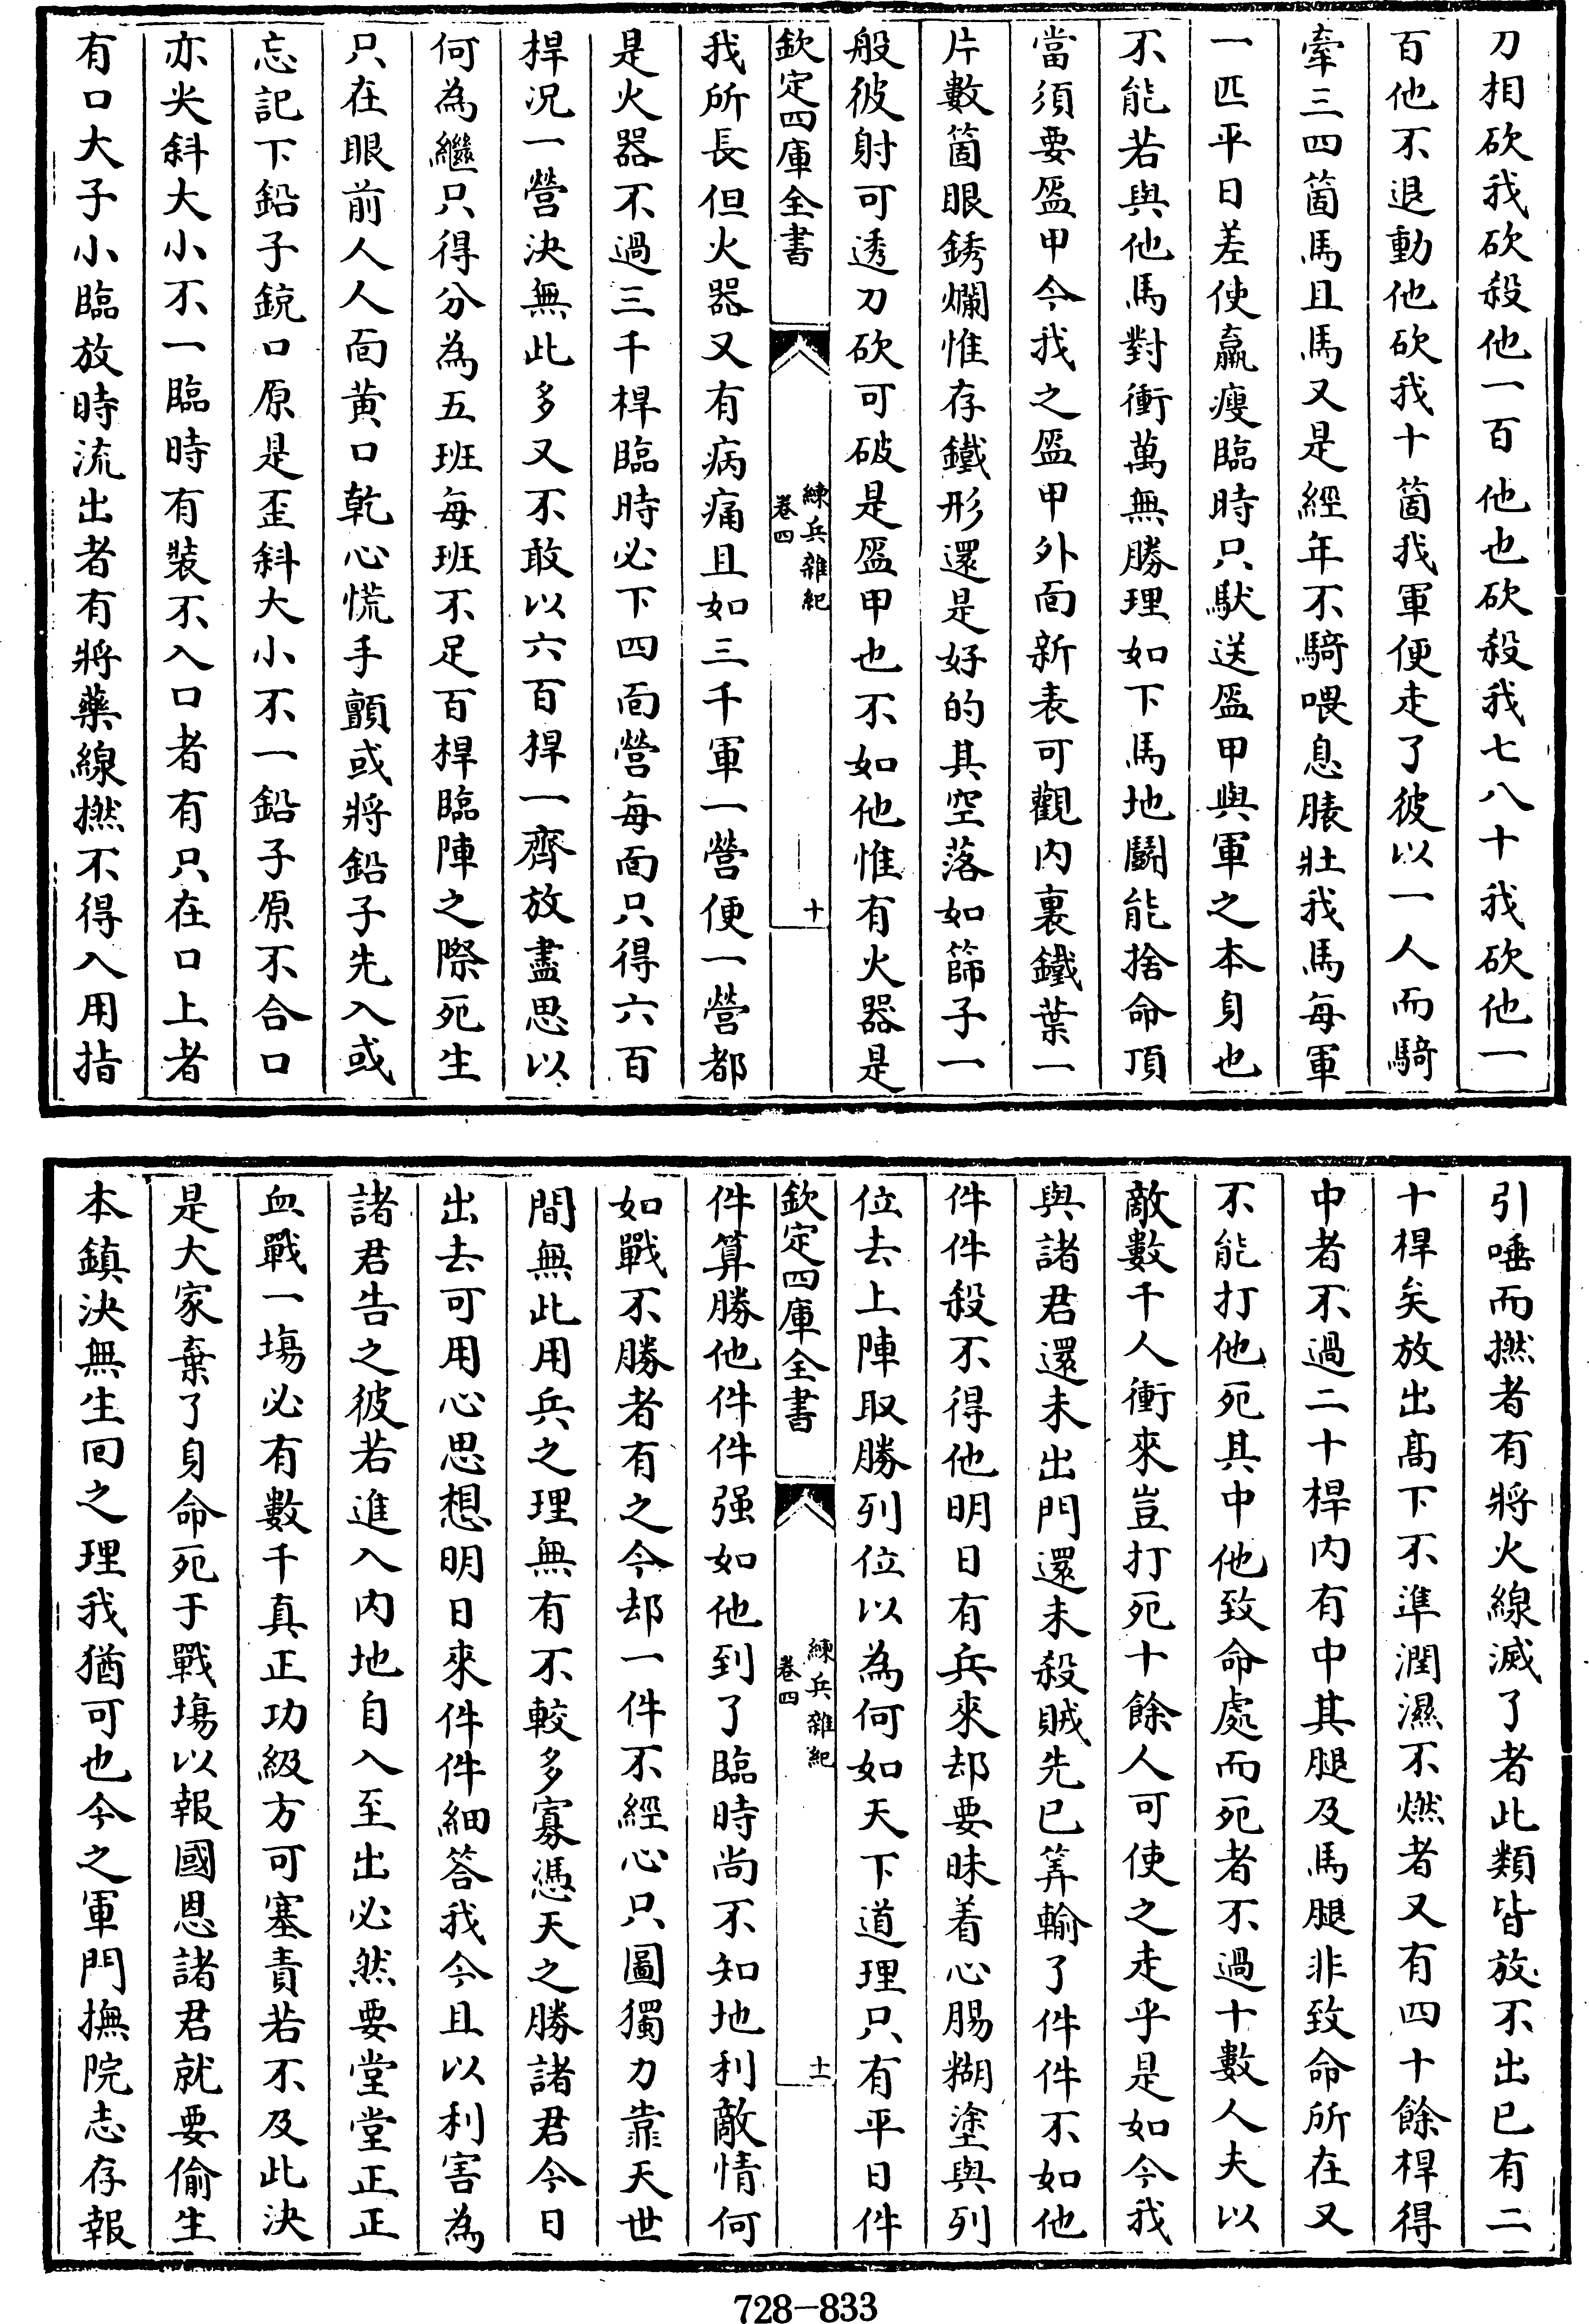 刀相砍我砍殺他一百他也砍殺我七八十我砍他一
百他不退動他砍我十箇我軍便走了彼以一人而騎
牽三四箇馬且馬又是經年不騎喂息臕壯我馬每軍
一匹平日差使羸瘦臨時只馱送盔甲與軍之本身也
不能若與他馬對衝萬無勝理如下馬地鬭能捨命頂
當須要盔甲今我之盔甲外面新表可觀內裏鐵葉一
片數箇眼銹爛惟存鐵形還是好的其空落如篩子一
般彼射可透刀砍可破是盔甲也不如他惟有火器是
欽定四庫全書
練兵雜紀
卷四
十
我所長但火器又有病痛且如三千軍一營便一營都
是火器不過三千桿臨時必下四面營每面只得六百
桿況一營決無此多又不敢以六百桿一齊放盡思以
何為繼只得分為五班每班不足百桿臨陣之際死生
只在眼前人人面黄口乾心慌手顫或將鉛子先入或
忘記下鉛子銃口原是歪斜大小不一鉛子原不合口
亦尖斜大小不一臨時有裝不入口者有只在口上者
有口大子小臨放時流出者有將藥線撚不得入用指
引唾而撚者有將火線滅了者此類皆放不出已有二
十桿矣放出髙下不準潤濕不燃者又有四十餘桿得
中者不過二十桿內有中其腿及馬腿非致命所在又
不能打他死其中他致命處而死者不過十數人夫以
敵數千人衝來豈打死十餘人可使之走乎是如今我
與諸君還未出門還未殺賊先已筭輸了件件不如他
件件殺不得他明日有兵來却要昧着心腸糊塗與列
位去上陣取勝列位以為何如天下道理只有平日件
欽定四庫全書
練兵雜紀
卷四
十一
件算勝他件件强如他到了臨時尚不知地利敵情何
如戰不勝者有之今却一件不經心只圖獨力靠天世
間無此用兵之理無有不較多寡憑天之勝諸君今日
出去可用心思想明日來件件細答我今且以利害為
諸君告之彼若進入內地自入至出必然要堂堂正正
血戰一塲必有數千真正功級方可塞責若不及此決
是大家棄了身命死于戰塲以報國恩諸君就要偷生
本鎮決無生回之理我猶可也今之軍門撫院志存報
728-833